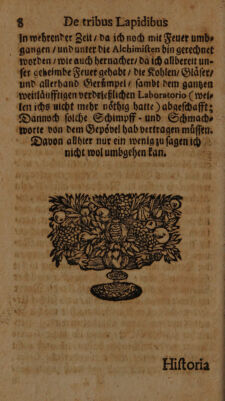 8 De tribus Lapidibus
In wehrender Zeit / da ich noch mit Feuer umb-
gangen / und unter die Alchimisten bin gerechnet
worden / wie auch hernacher / da ich allbereit un-
ser geheimde Feuer gehabt / die Kohlen / Gläser /
und allerhand Gerümpel / sambt dem gantzen
weitläufftigen verdrießlichen Laboratorio (wei-
len ichs nicht mehr nöthig hatte) abgeschafft;
Dannoch solche Schimpff- und Schmach-
worte von dem Gepövel hab vertragen müssen.
Davon allhier nur ein wenig zu sagen ich
nicht wol umbgehen kan.
Historia